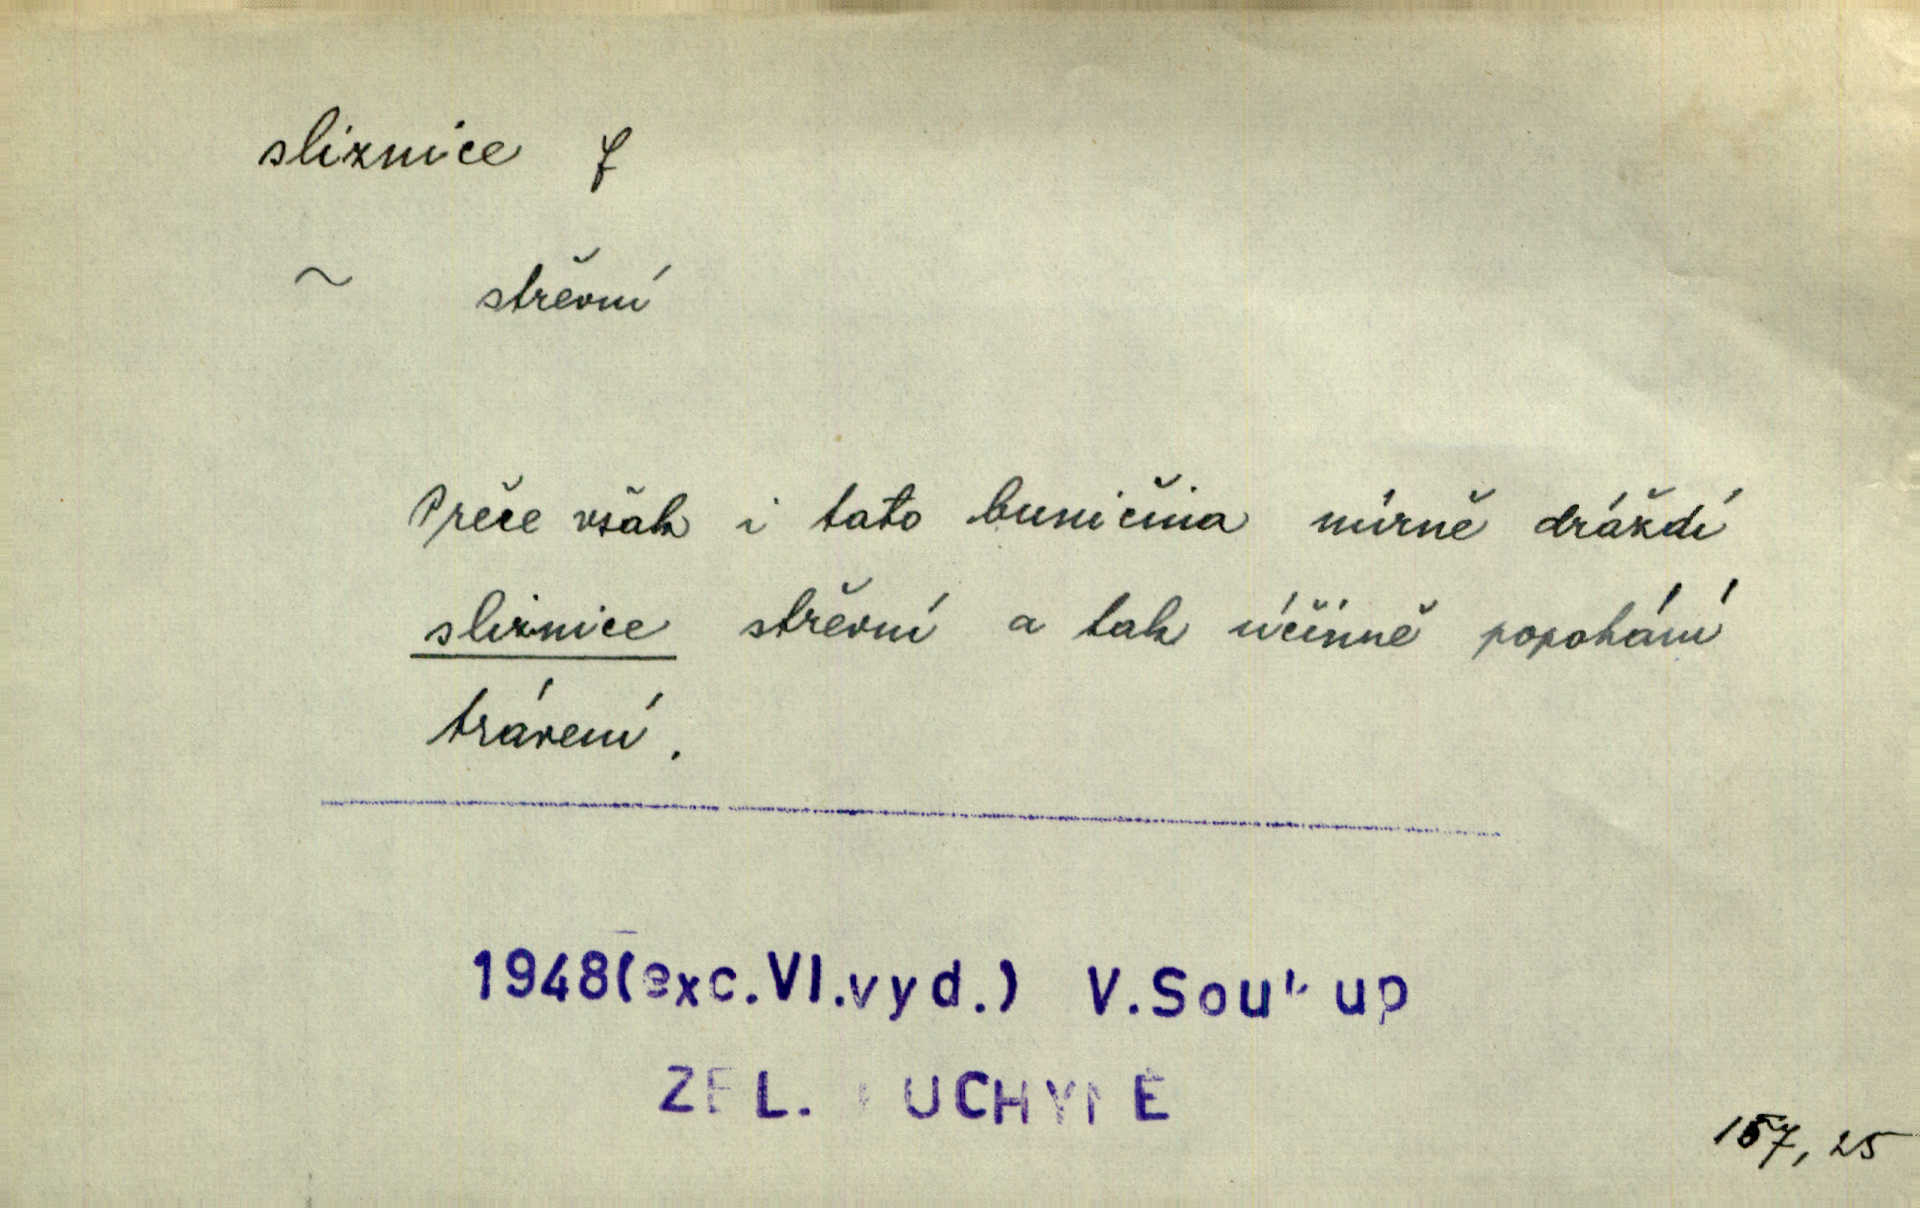 sliznice f
~ střevní
Přece však i tato buničina mírně dráždí
sliznice střevní a tak účinně popohání
trávení.
1948(exc.VI.vyd.) V.Soukup
ZEL. KUCHYNĚ
157, 25